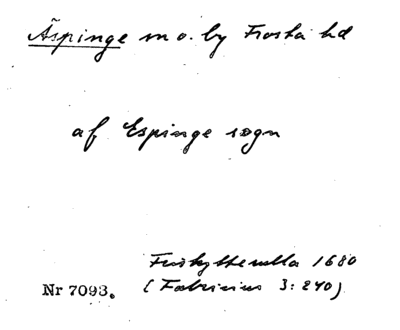 Äspinge m o. by Frosta hd
af Espinge sogn
Friskytterulla 1680
Nr 7093. (Fabricius 3: 240)